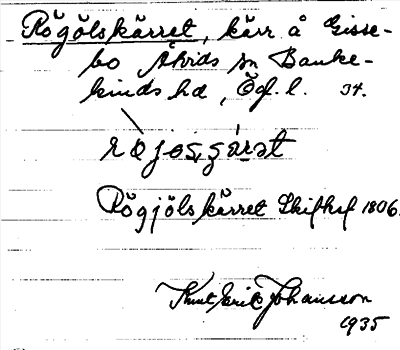 Rögölskärret, kärr å Gisse-
bo Åtvids sn Banke-
kinds hd, Ögl. l. 34.
Rögjölskärret Skifthfl 1806.
Knut Erik Johansson
1935